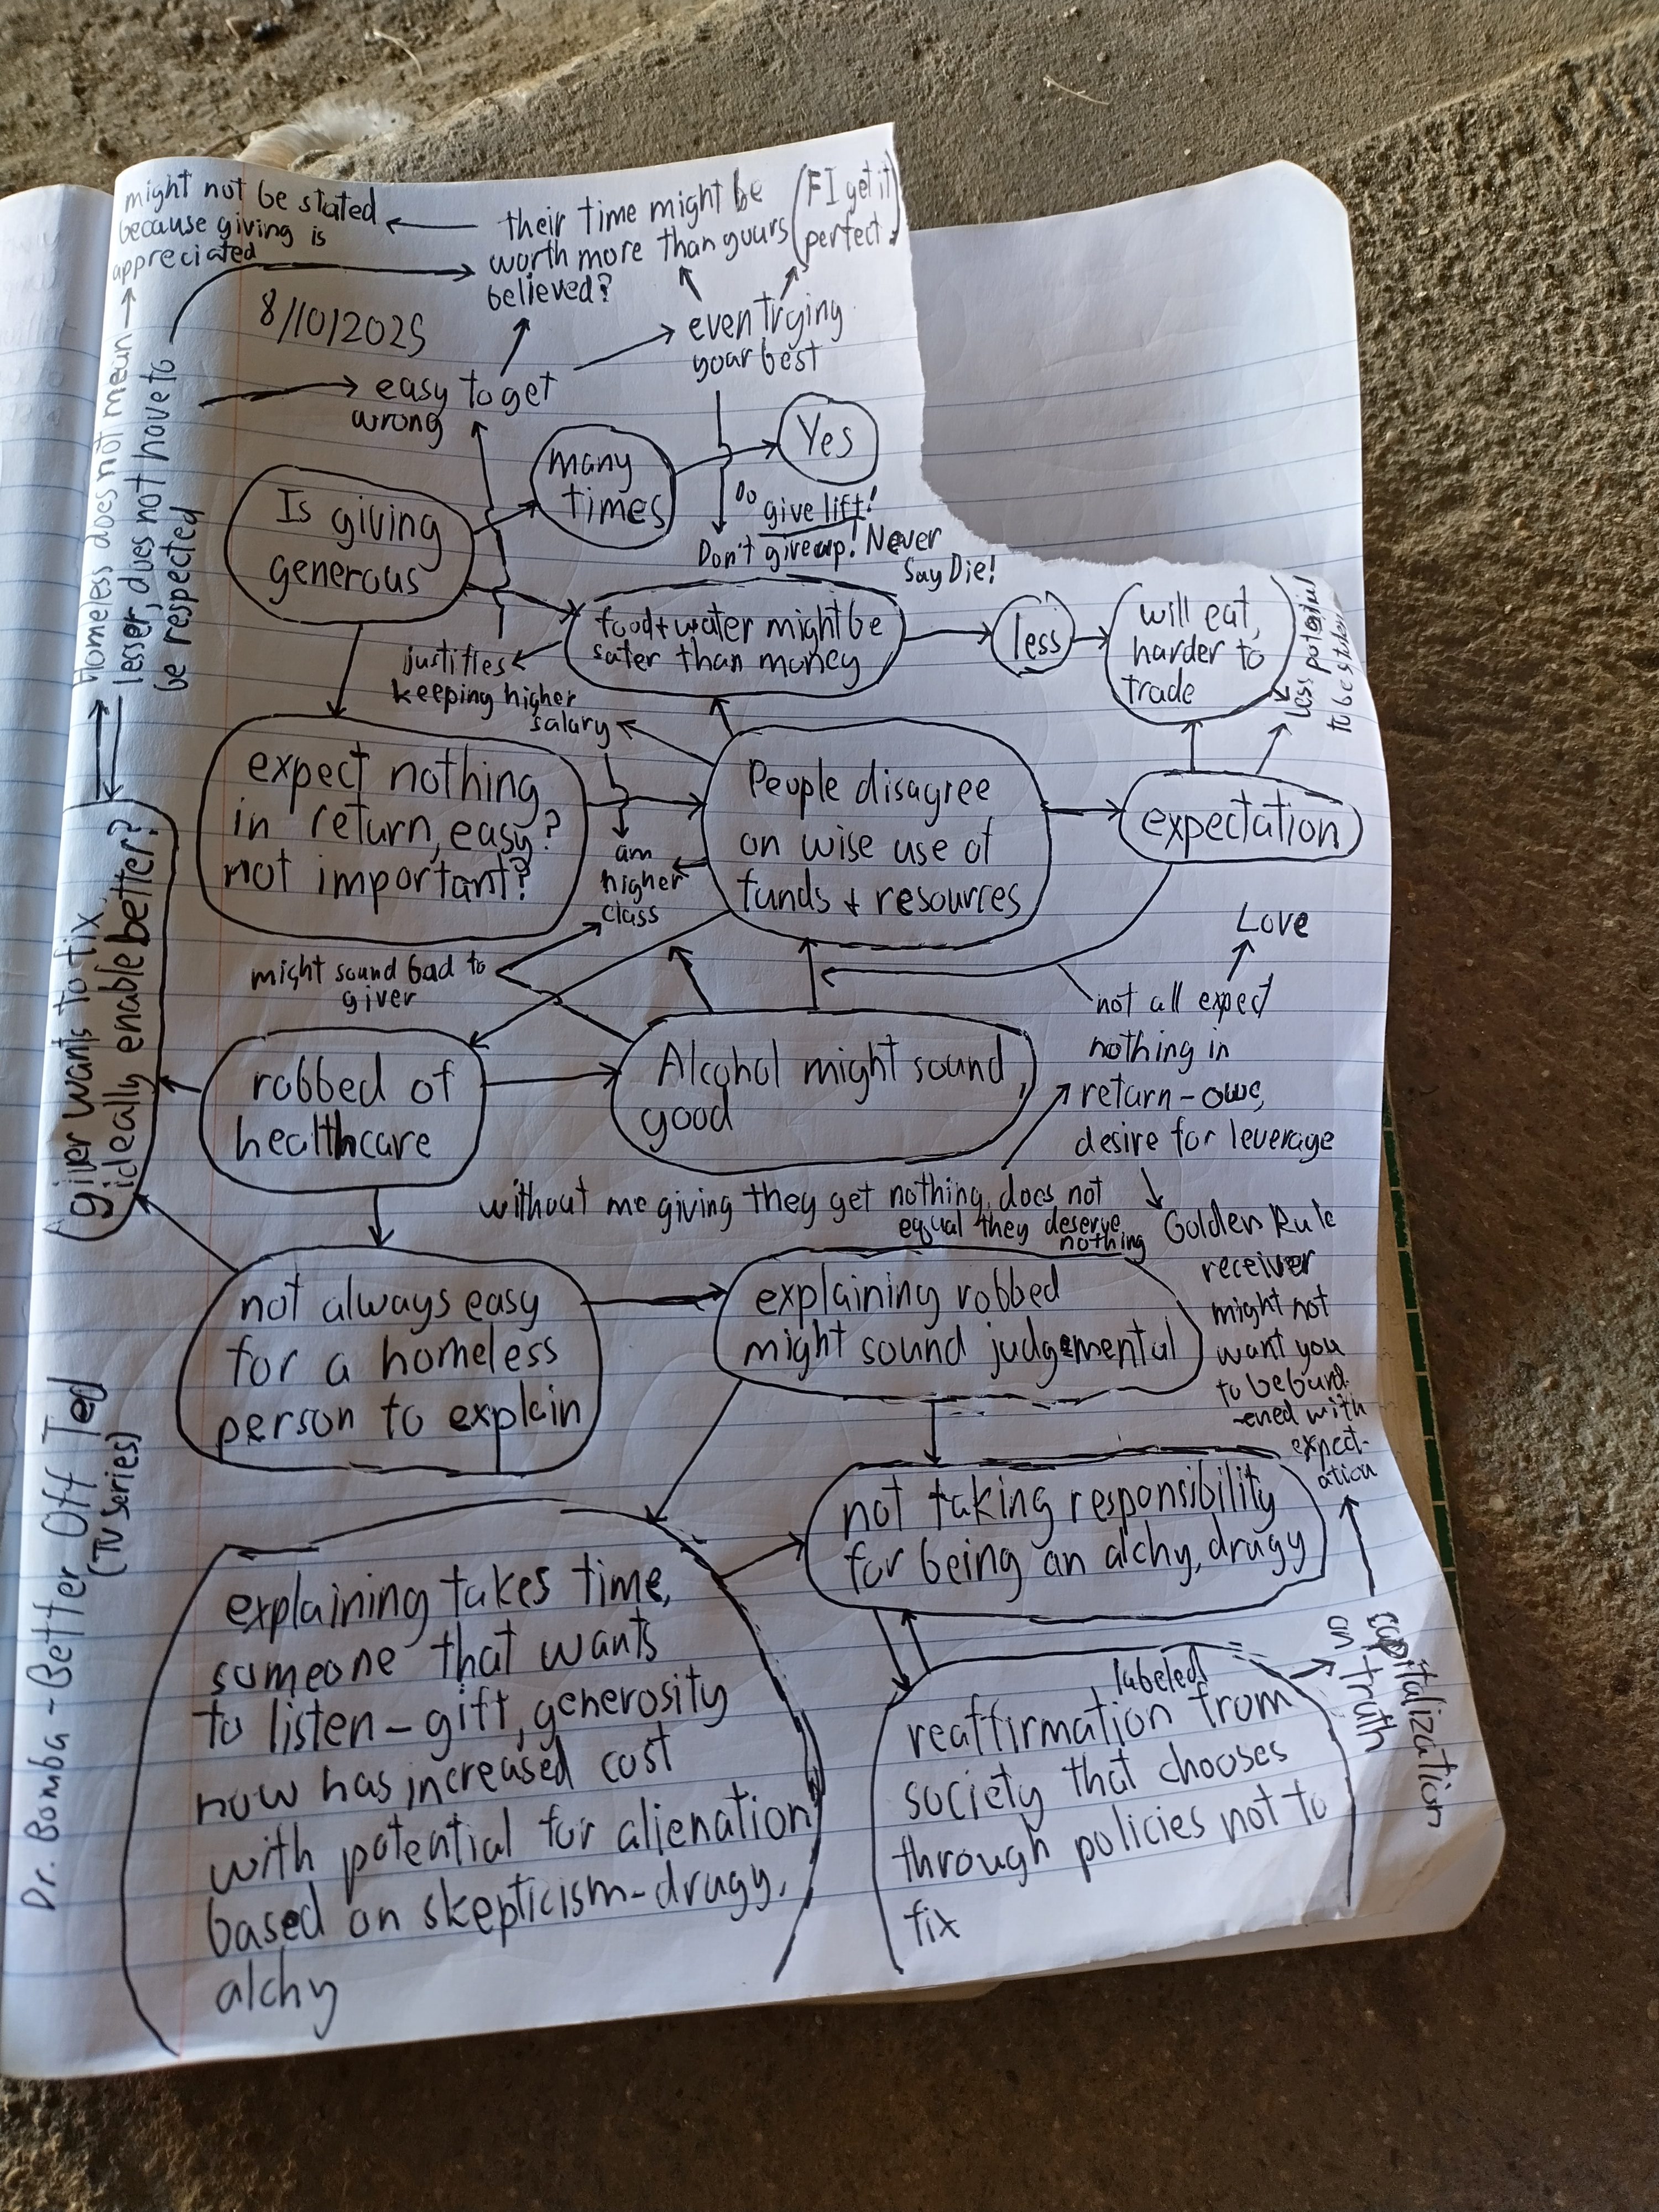 might not be stated
because giving is
appreciated
their time might be
worth more than yours
believed?
(FI get it
perfect.)
8/10/2025
easy to get
wrong
even trying
your best
Homeless does not mean
lesser, does not have to
be respected
Is giving
generous
many
times
Yes
Do give lift!
Don't give up! Never
Say Die!
food + water might be
safer than money
less
will eat,
harder to
trade
less potential
to be stolen
justifies
keeping higher
salary
expect nothing
in return, easy?
not important?
am
higher
class
People disagree
on wise use of
funds + resources
expectation
Love
might sound bad to
giver
not all expect
nothing in
return - owe,
desire for leverage
giver wants to fix,
ideally enable better?
robbed of
healthcare
Alcohol might sound
good
without me giving they get nothing, does not
equal they deserve
nothing
Golden Rule
receiver
might not
want you
to be burd-
ened with
expect-
ation
not always easy
for a homeless
person to explain
explaining robbed
might sound judgemental
not taking responsibility
for being an alchy, drugy
explaining takes time,
someone that wants
to listen - gift, generosity
now has increased cost
with potential for alienation
based on skepticism - drugy,
alchy
labeled
reaffirmation from
society that chooses
through policies not to
fix
capitalization
on truth
Dr. Bomba - Better Off Ted
(TV Series)